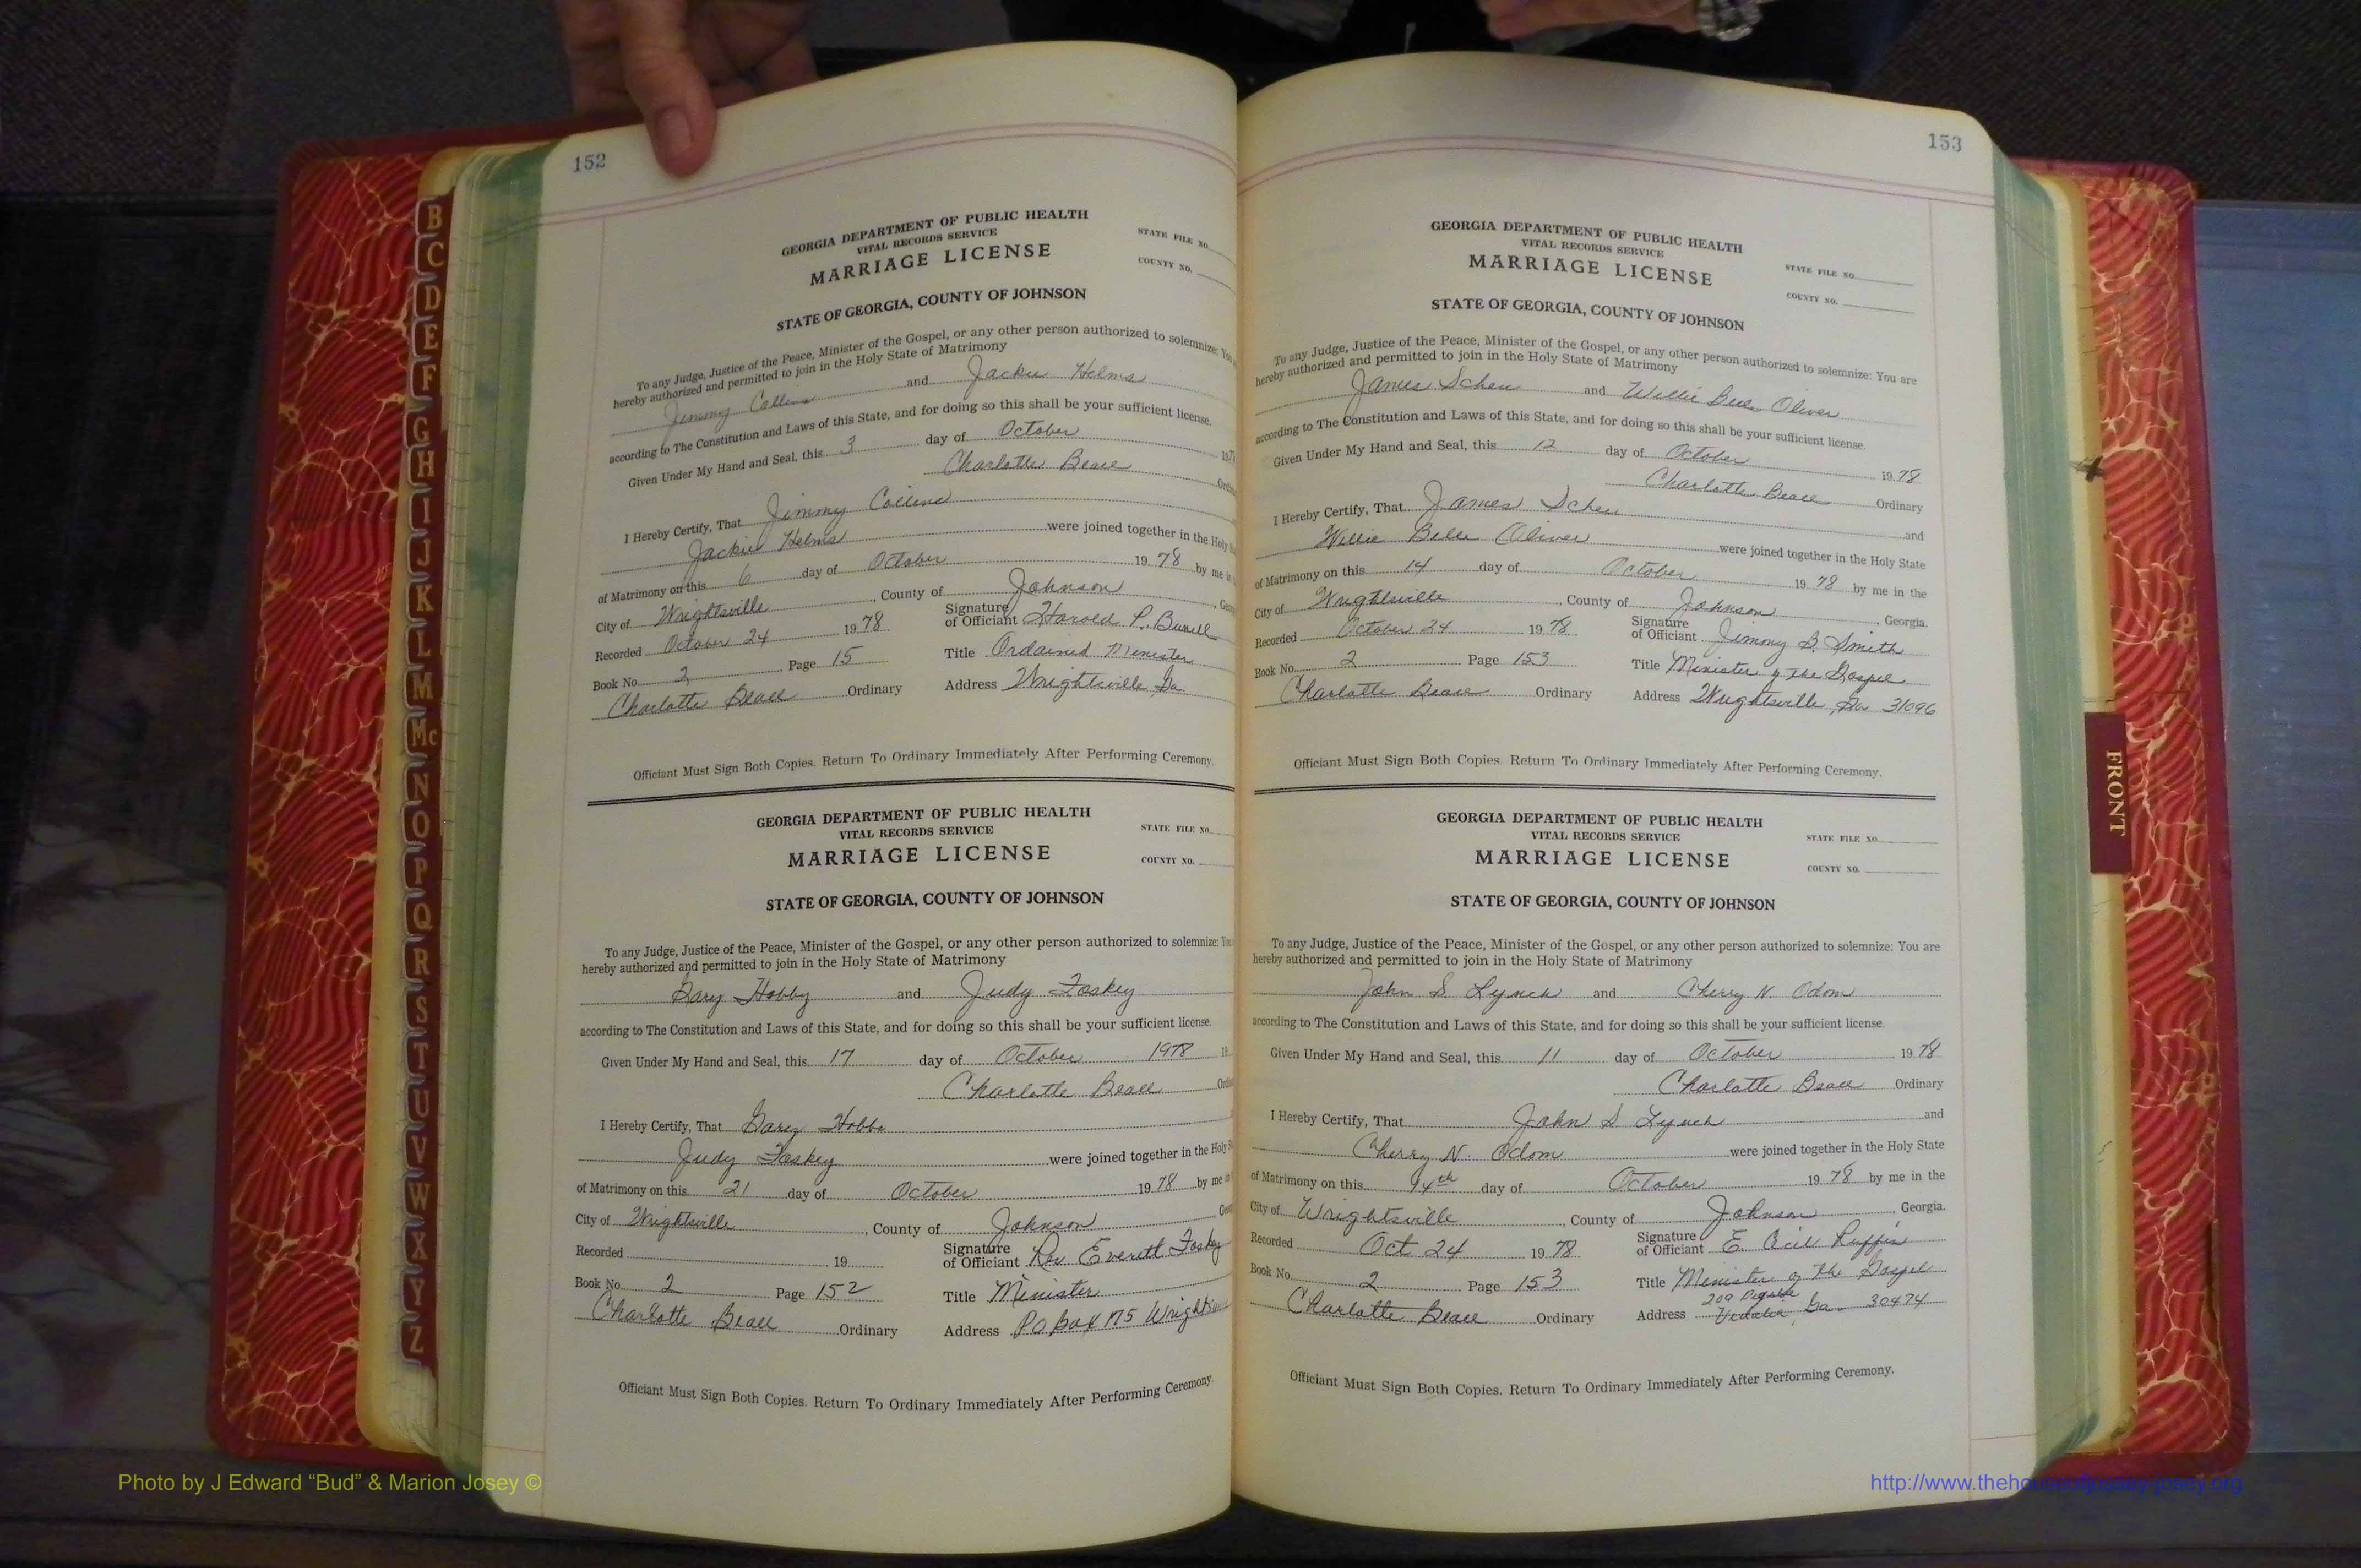 152
GEORGIA DEPARTMENT OF PUBLIC HEALTH
VITAL RECORDS SERVICE
MARRIAGE LICENSE
STATE FILE NO.
COUNTY NO.
STATE OF GEORGIA, COUNTY OF JOHNSON
To any Judge, Justice of the Peace, Minister of the Gospel, or any other person authorized to solemnize: You
hereby authorized and permitted to join in the Holy State of Matrimony
Jimmy Collins and Jackie Helms
according to The Constitution and Laws of this State, and for doing so this shall be your sufficient license.
Given Under My Hand and Seal, this 3 day of October 197
Charlotte Beall
I Hereby Certify, That Jimmy Collins
Jackie Helms were joined together in the Holy
of Matrimony on this 6 day of October 19 78 by me in
City of Wrightsville, County of Johnson
Recorded October 24 19 78 Signature of Officiant Harold P.
Book No. 2 Page 15 Title Ordained Minister
Charlotte Beall Ordinary Address Wrightsville Ga
Officiant Must Sign Both Copies. Return To Ordinary Immediately After Performing Ceremony.
GEORGIA DEPARTMENT OF PUBLIC HEALTH
VITAL RECORDS SERVICE
MARRIAGE LICENSE
STATE FILE NO.
COUNTY NO.
STATE OF GEORGIA, COUNTY OF JOHNSON
To any Judge, Justice of the Peace, Minister of the Gospel, or any other person authorized to solemnize: You
hereby authorized and permitted to join in the Holy State of Matrimony
Gary Hobby and Judy Foskey
according to The Constitution and Laws of this State, and for doing so this shall be your sufficient license.
Given Under My Hand and Seal, this 17 day of October 1978 19
Charlotte Beall
I Hereby Certify, That Gary Hobbs
Judy Foskey were joined together in the Holy
of Matrimony on this 21 day of October 19 78 by me in
City of Wrightsville, County of Johnson
Recorded 19 Signature of Officiant Rev Everett Foskey
Book No. 2 Page 152 Title Minister
Charlotte Beall Ordinary Address PO Box 175
Officiant Must Sign Both Copies. Return To Ordinary Immediately After Performing Ceremony.
153
GEORGIA DEPARTMENT OF PUBLIC HEALTH
VITAL RECORDS SERVICE
MARRIAGE LICENSE
STATE FILE NO.
COUNTY NO.
STATE OF GEORGIA, COUNTY OF JOHNSON
To any Judge, Justice of the Peace, Minister of the Gospel, or any other person authorized to solemnize: You are
hereby authorized and permitted to join in the Holy State of Matrimony
James and Willie Belle Oliver
according to The Constitution and Laws of this State, and for doing so this shall be your sufficient license.
Given Under My Hand and Seal, this 12 day of October 19 78
Charlotte Beall Ordinary
I Hereby Certify, That James and
Willie Belle Oliver were joined together in the Holy State
of Matrimony on this 14 day of October 19 78 by me in the
City of Wrightsville, County of Johnson, Georgia.
Recorded October 24 19 78 Signature of Officiant Jimmy B. Smith
Book No. 2 Page 153 Title Minister of the Gospel
Charlotte Beall Ordinary Address Wrightsville, Ga 31096
Officiant Must Sign Both Copies. Return To Ordinary Immediately After Performing Ceremony.
GEORGIA DEPARTMENT OF PUBLIC HEALTH
VITAL RECORDS SERVICE
MARRIAGE LICENSE
STATE FILE NO.
COUNTY NO.
STATE OF GEORGIA, COUNTY OF JOHNSON
To any Judge, Justice of the Peace, Minister of the Gospel, or any other person authorized to solemnize: You are
hereby authorized and permitted to join in the Holy State of Matrimony
John S. Lynch and Cherry N. Odom
according to The Constitution and Laws of this State, and for doing so this shall be your sufficient license.
Given Under My Hand and Seal, this 11 day of October 19 78
Charlotte Beall Ordinary
I Hereby Certify, That John S Lynch and
Cherry N. Odom were joined together in the Holy State
of Matrimony on this 14th day of October 19 78 by me in the
City of Wrightsville, County of Johnson, Georgia.
Recorded Oct 24 19 78 Signature of Officiant E. Cecil Ruffin
Book No. 2 Page 153 Title Minister of the Gospel
209
Charlotte Beall Ordinary Address Vidalia, Ga. 30474
Officiant Must Sign Both Copies. Return To Ordinary Immediately After Performing Ceremony.
B
C
D
E
F
G
H
I
J
K
L
M
Mc
N
O
P
Q
R
S
T
U
V
W
X
Y
Z
FRONT
Photo by J Edward “Bud” & Marion Josey ©
http://www.thehouseofjossey-josey.org